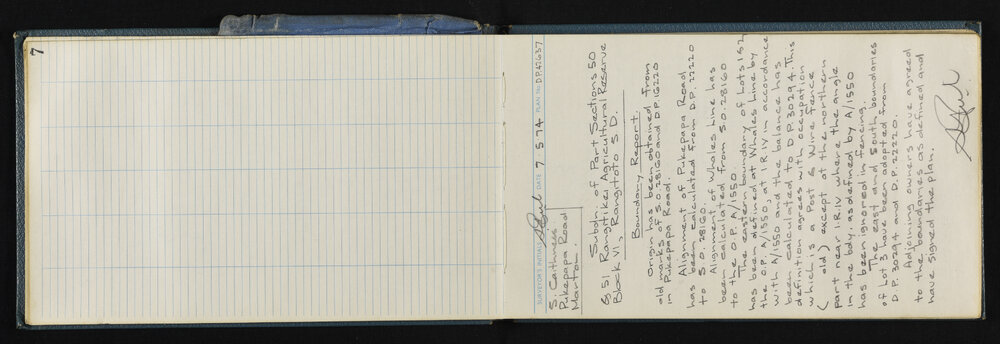 7
SURVEYOR'S INITIALS DATE 7 5.74 PLAN No. D.P. 47637
S. Caithness
Pukepapa Road
Marton.
Subdn. of Part Sections 50
& 51 Rangitikei Agricultural Reserve
Block VI, Rangitoto S.D.
Boundary Report.
Origin has been obtained from
old marks of S.O. 28160 and D.P. 16220
in Pukepapa Road.
Alignment of Pukepapa Road
has been calculated from D.P. 22220
to S.O. 28160.
Alignment of Whales Line has
been calculated from S.O. 28160
to the O.P. A/1550
The eastern boundary of Lots 1 & 2
has been defined at Whales Line by
the O.P. A/1550, at I R IV in accordance
with A/1550 and the balance has
been calculated to D.P. 30294. This
definition agrees with occupation
which is a Post & Wire fence
( old) except at the northern
part near I.R.IV where the angle
in the body, as defined by A/1550
has been ignored in fencing.
The east and South boundaries
of Lot 3 have been adopted from
D.P. 30294 and D.P. 22220.
Adjoining owners have agreed
to the boundaries as defined and
have signed the plan.